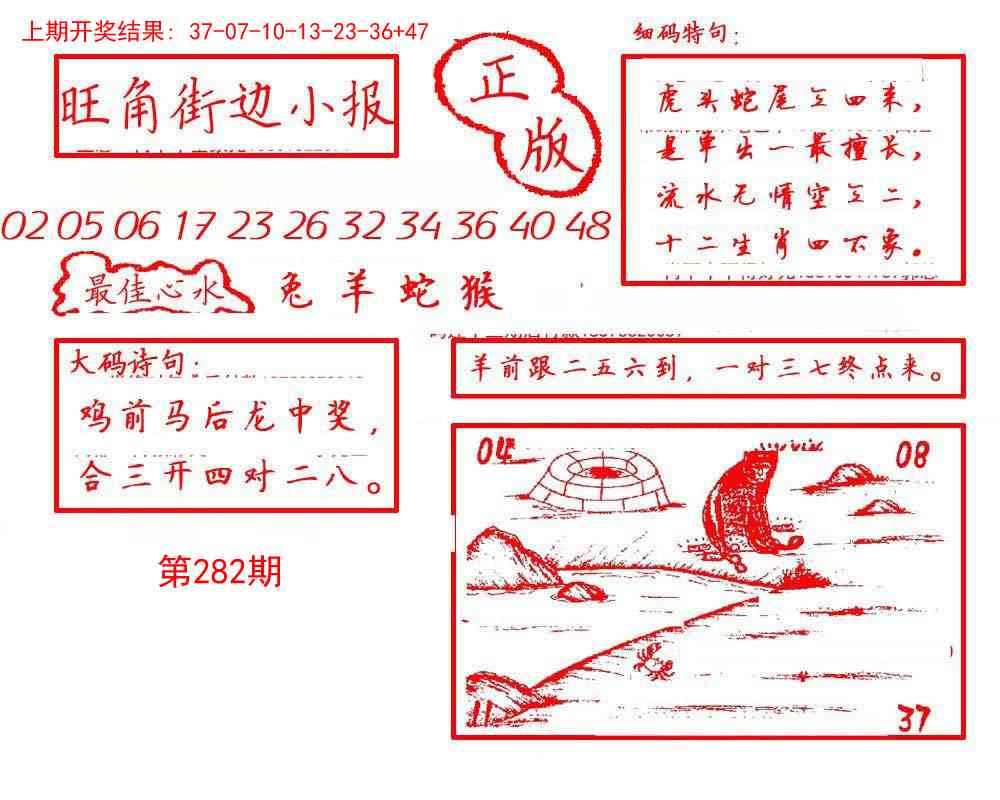 上期开奖结果：37-07-10-13-23-36+47
旺角街边小报
正版
细码特句：
虎头蛇尾三四来，
是单出一最擅长，
流水无情空三二，
十二生肖四不象。
02 05 06 17 23 26 32 34 36 40 48
最佳心水
兔羊蛇猴
大码诗句：
鸡前马后龙中奖，
合三开四对二八。
羊前跟二五六到，一对三七终点来。
第282期
04
08
11
37